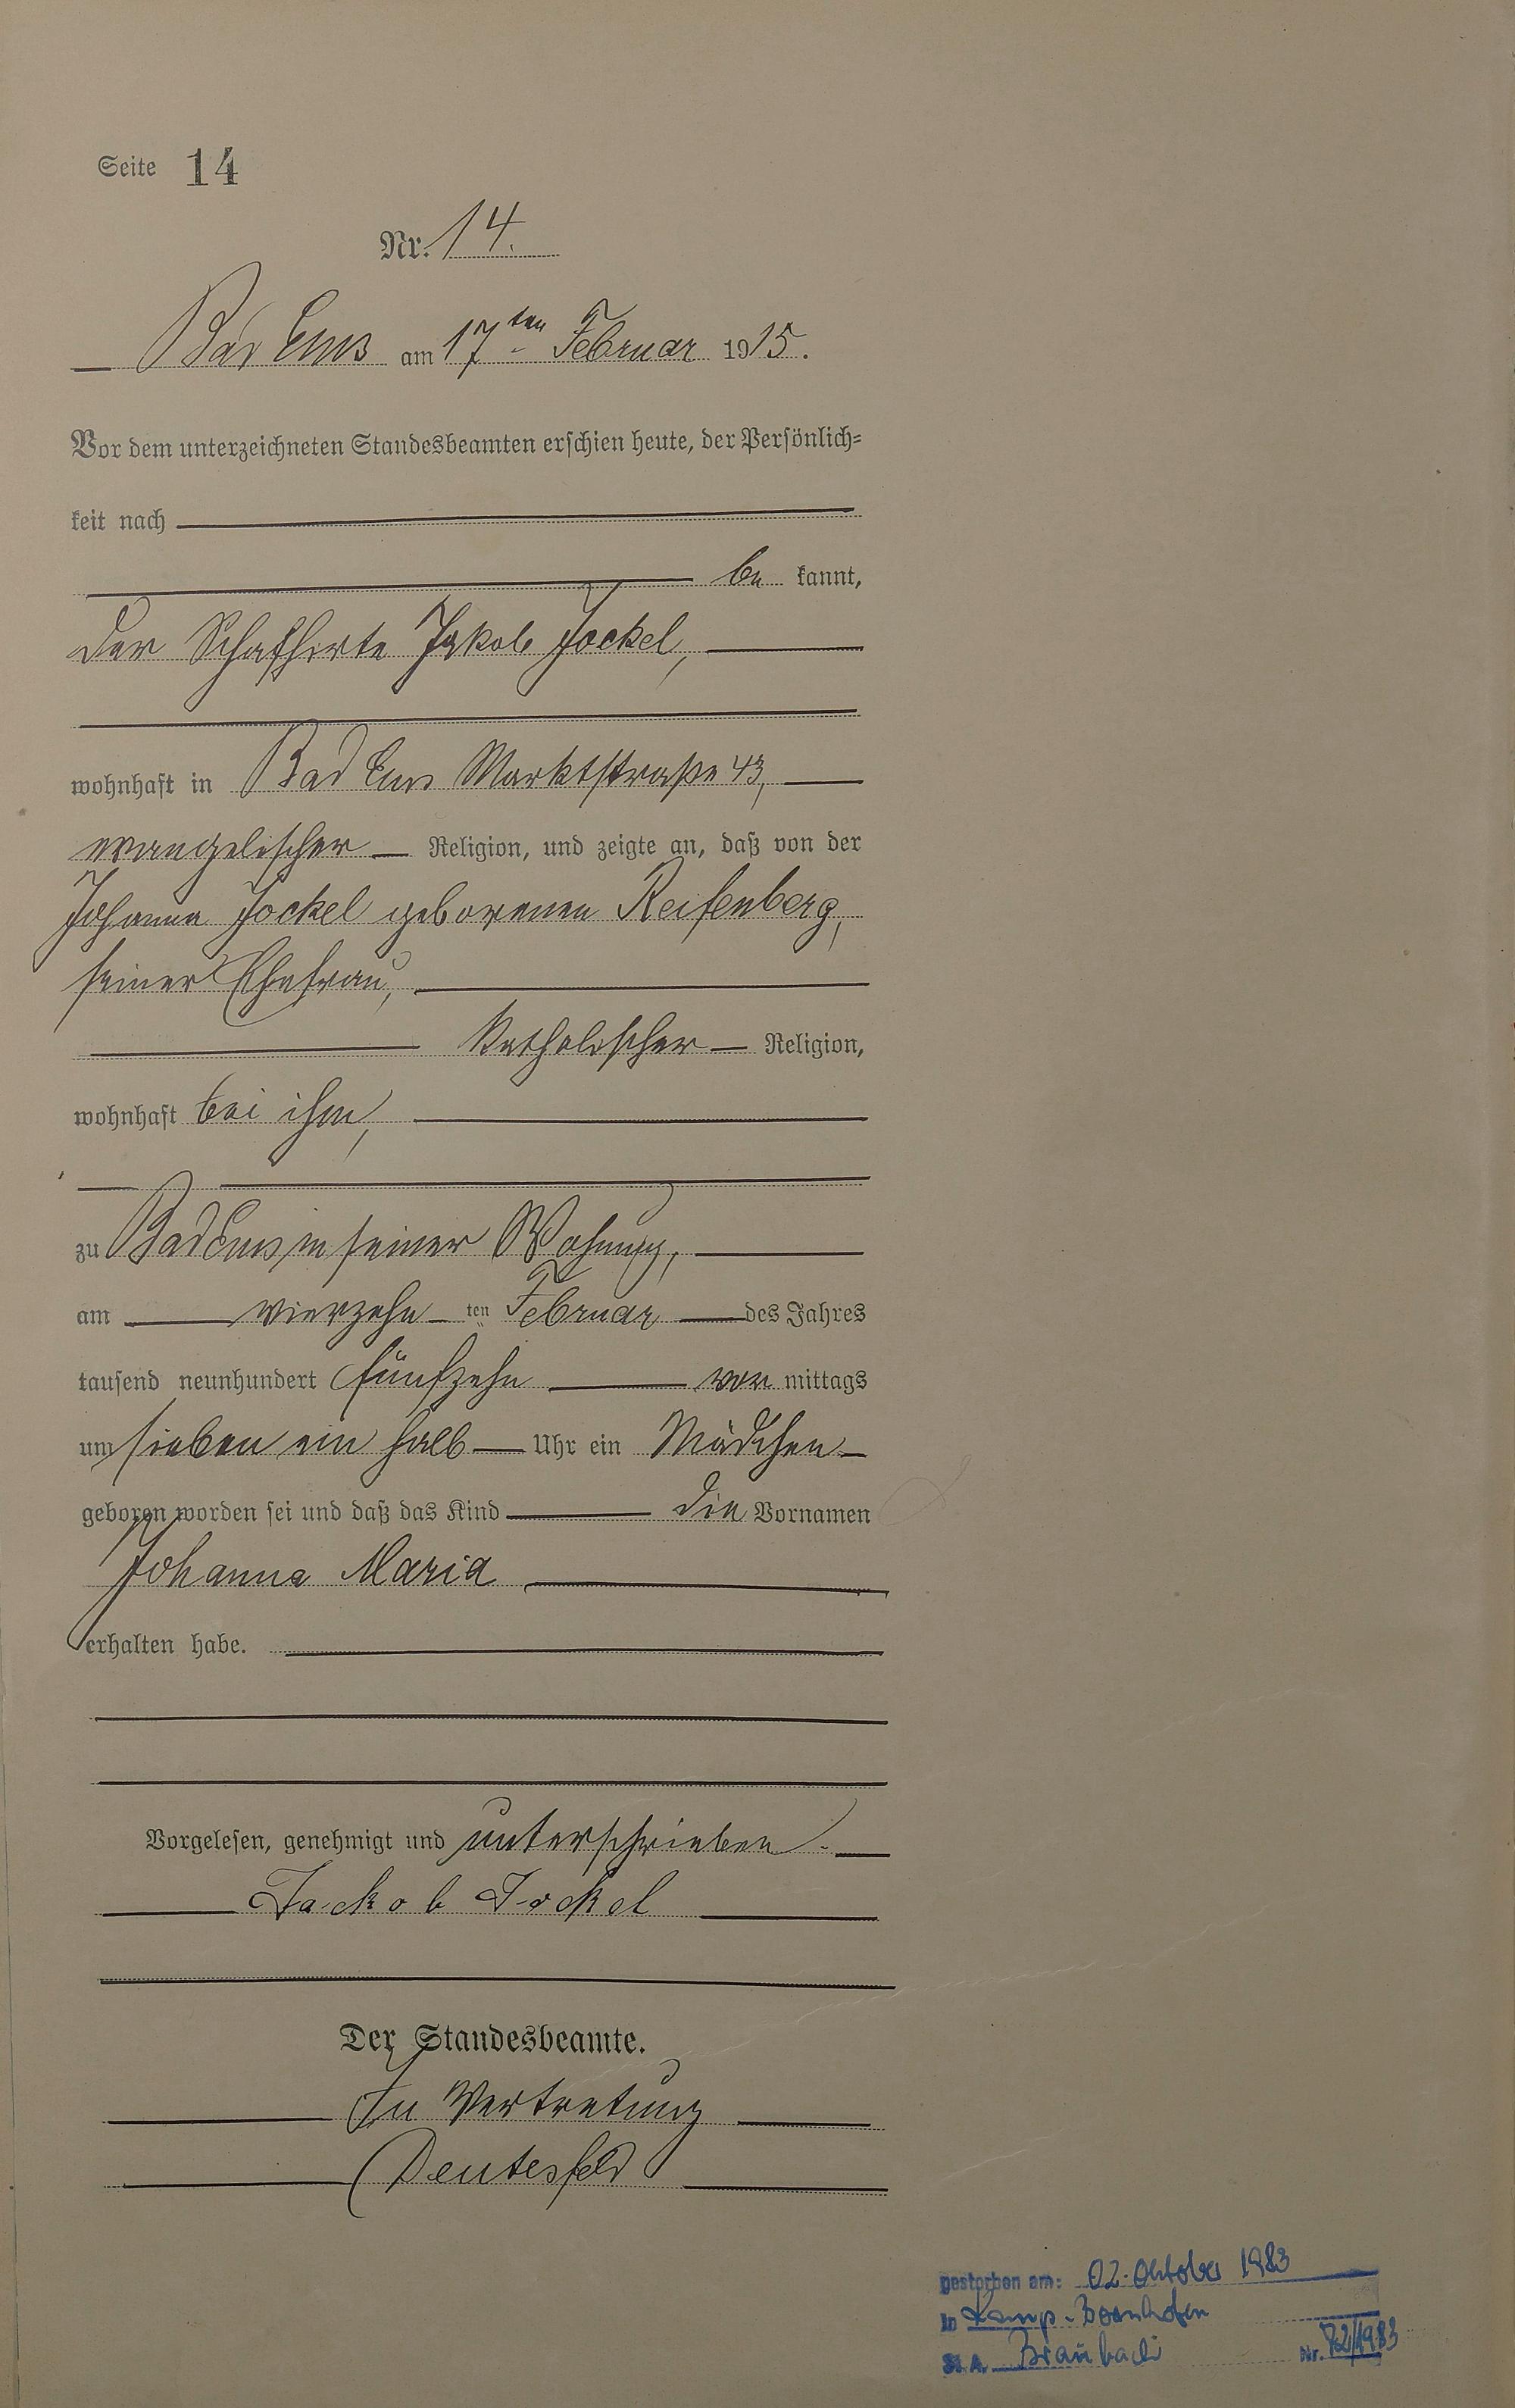 Seite 14
Nr. 14.
Bad Ems am 17ten Februar 1915.
Vor dem unterzeichneten Standesbeamten erschien heute, der Persönlich-
keit nach
be kannt,
der Schafhirte Jakob Jockel,
wohnhaft in Bad Ems Marktstraße 43,
evangelischer Religion, und zeigte an, daß von der
Johanna Jockel geborenen Reifenberg,
seiner Ehefrau,
katholischer Religion,
wohnhaft bei ihm,
zu Bad Ems in seiner Wohnung,
am vierzehn ten Februar des Jahres
tausend neunhundert fünfzehn vor mittags
um sieben ein halb Uhr ein Mädchen
geboren worden sei und daß das Kind die Vornamen
Johanna Maria
erhalten habe.
Vorgelesen, genehmigt und unterschrieben.
Jackob Jockel
Der Standesbeamte.
In Vertretung
Deutesfeld
gestorben am: 02. Oktober 1983
in Kamp-Bornhofen
St. A. Braubach Nr. 72/1983